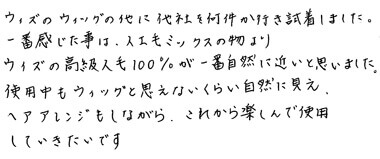 ウィズのウィッグの他に他社を何件か行き試着しました。
一番感じた事は、人工毛ミックスの物より
ウィズの高級人毛100%が一番自然に近いと思いました。
使用中もウィッグと思えないくらい自然に見え、
ヘアアレンジもしながら、これから楽しんで使用
していきたいです